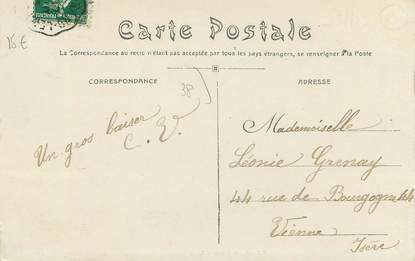 15 €
Carte Postale
La Correspondance au recto n'étant pas acceptée par tous les pays étrangers, se renseigner à la Poste
CORRESPONDANCE
ADRESSE
38
Un gros baiser
C. V.
Mademoiselle
Léonie Grenay
44 rue de Bourgogne 44
Vienne
Isère